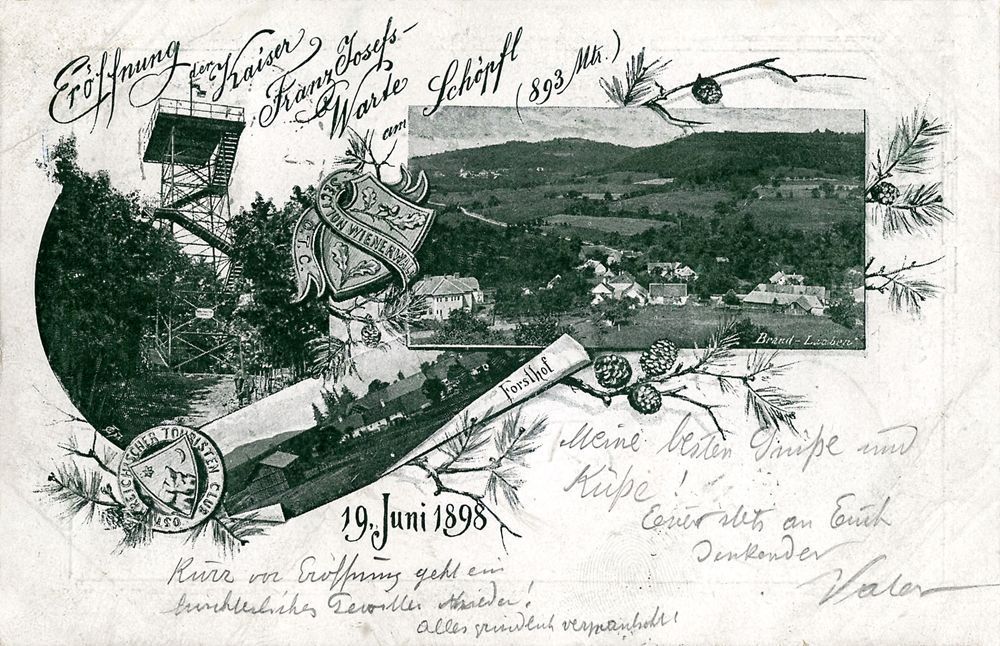 Eröffnung
der Kaiser
Franz Josefs-
Warte
am Schöpfl
(893 Mtr.)
SECTION WIENERWALD
Ö.T.C.
Brand-Laaben
Forsthof
OSTERREICHISCHER TOURISTEN CLUB
19. Juni 1898
Meine besten Grüße und
Küße!
Euer stets an Euch
Denkender
Vater
Kurz vor Eröffnung geht ein
fürchterliches Gewitter nieder!
Alles gründlich verpantscht!